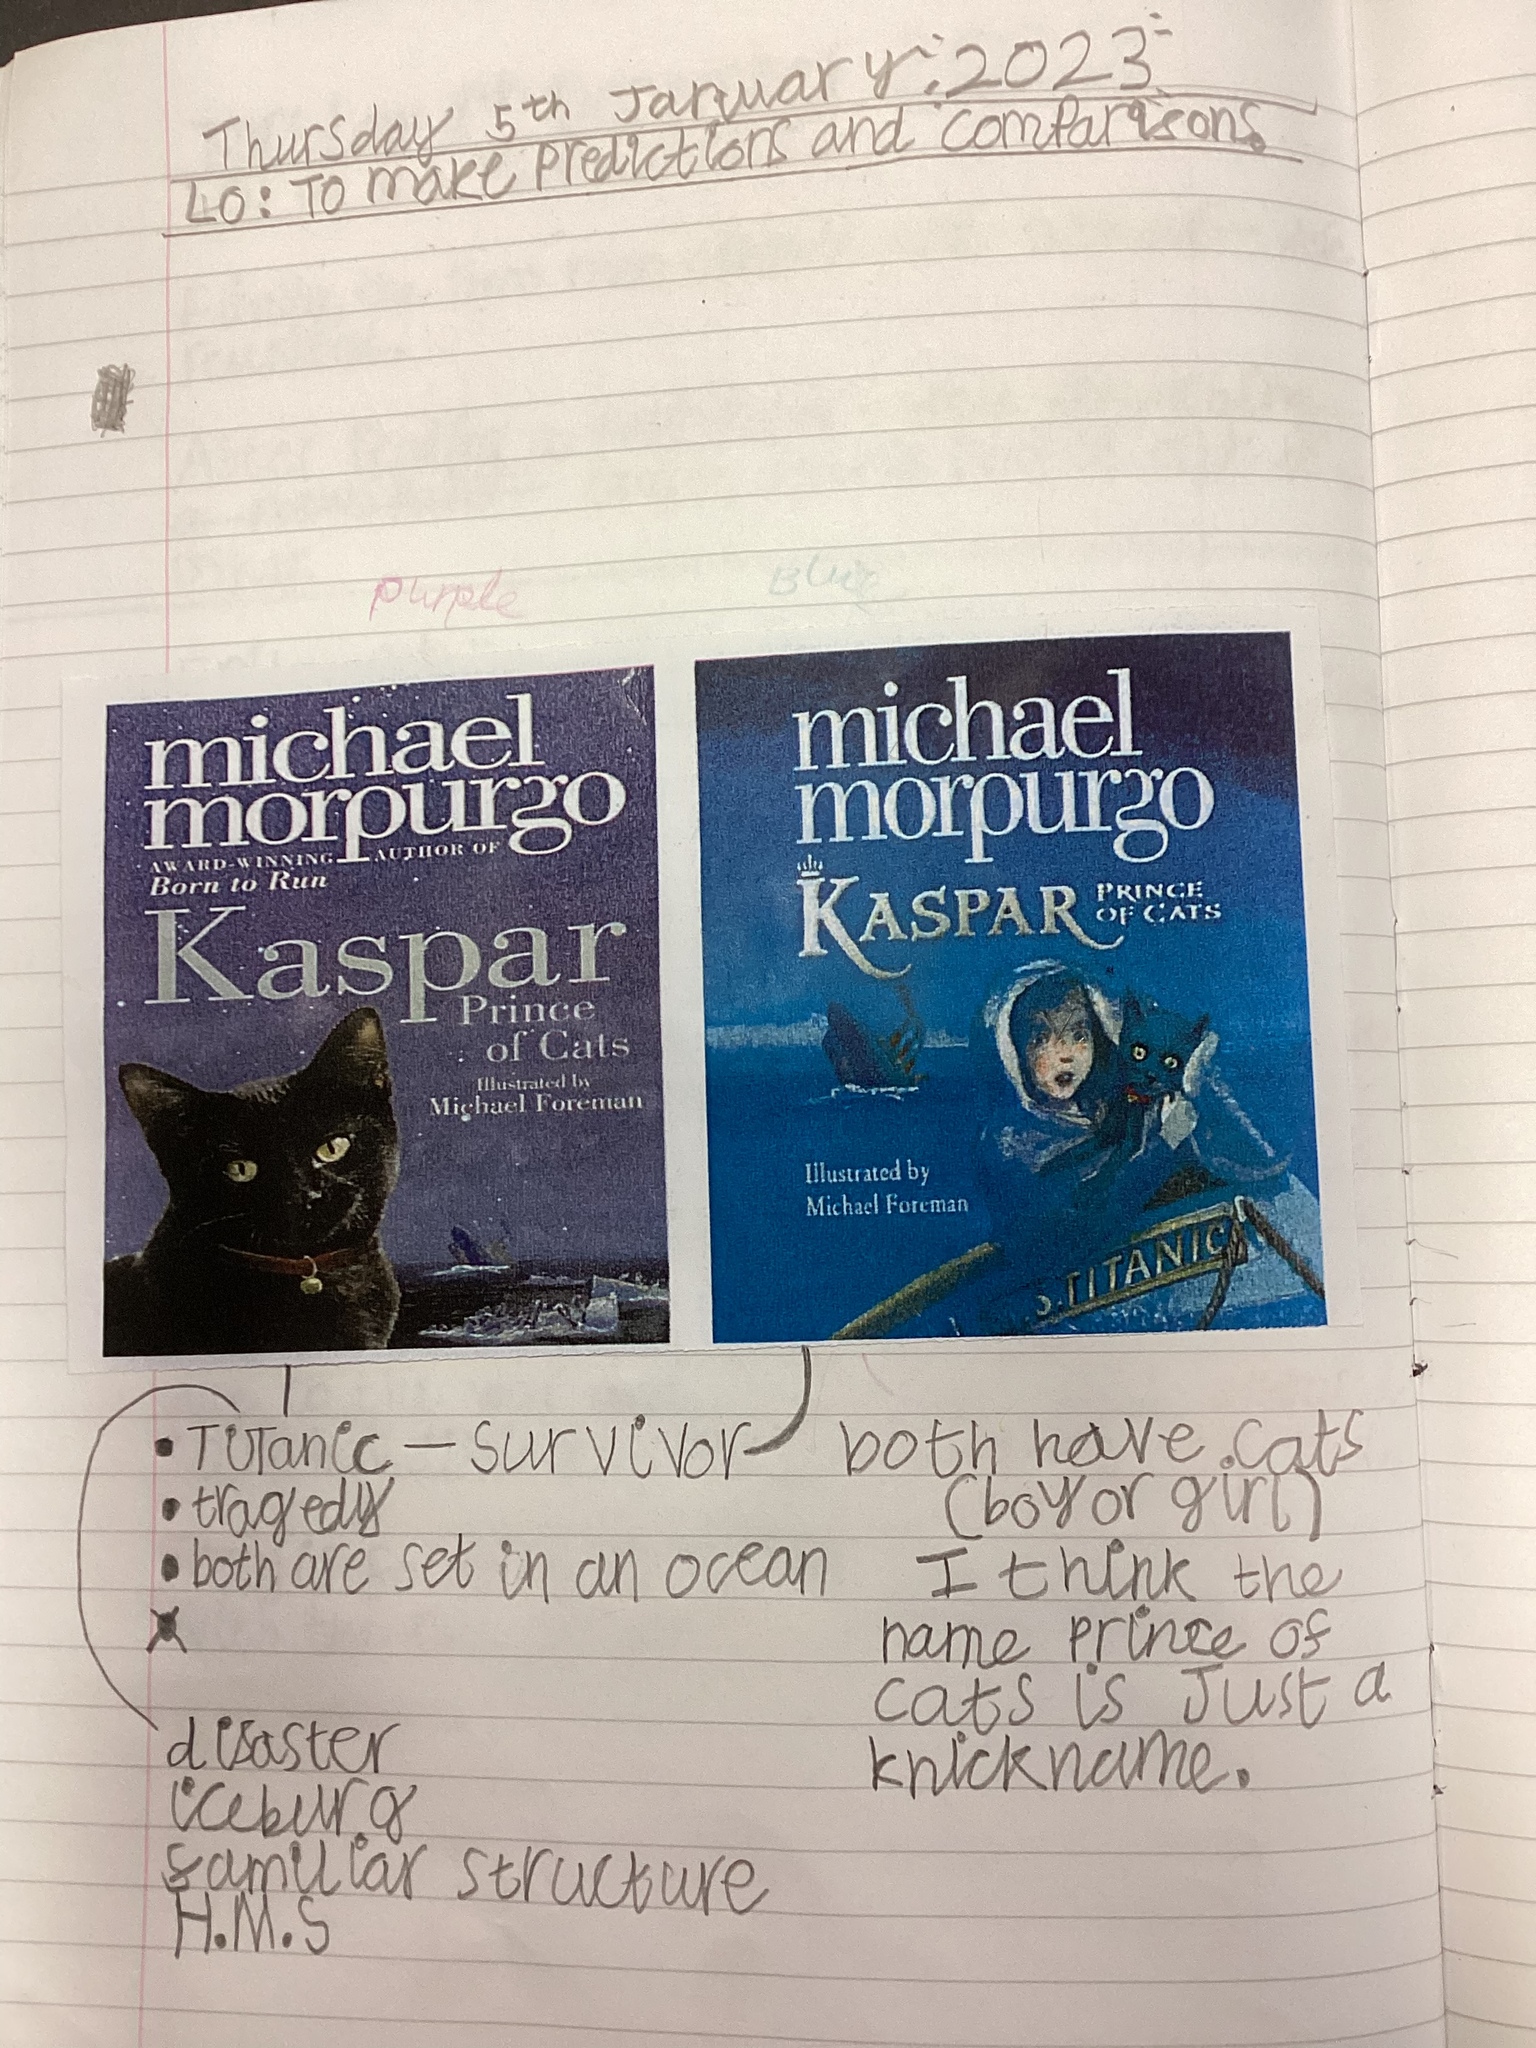 Thursday 5th January 2023
LO: To make predictions and comparisons.
purple
Blue
michael
morpurgo
AWARD-WINNING AUTHOR OF
Born to Run
Kaspar
Prince
of Cats
Illustrated by
Michael Foreman
michael
morpurgo
KASPAR PRINCE
OF CATS
Illustrated by
Michael Foreman
S. TITANIC
• Titanic — survivor
• tragedy
• both are set in an ocean
disaster
iceburg
familiar structure
H.M.S
both have cats
(boy or girl)
I think the
name prince of
cats is Just a
knickname.